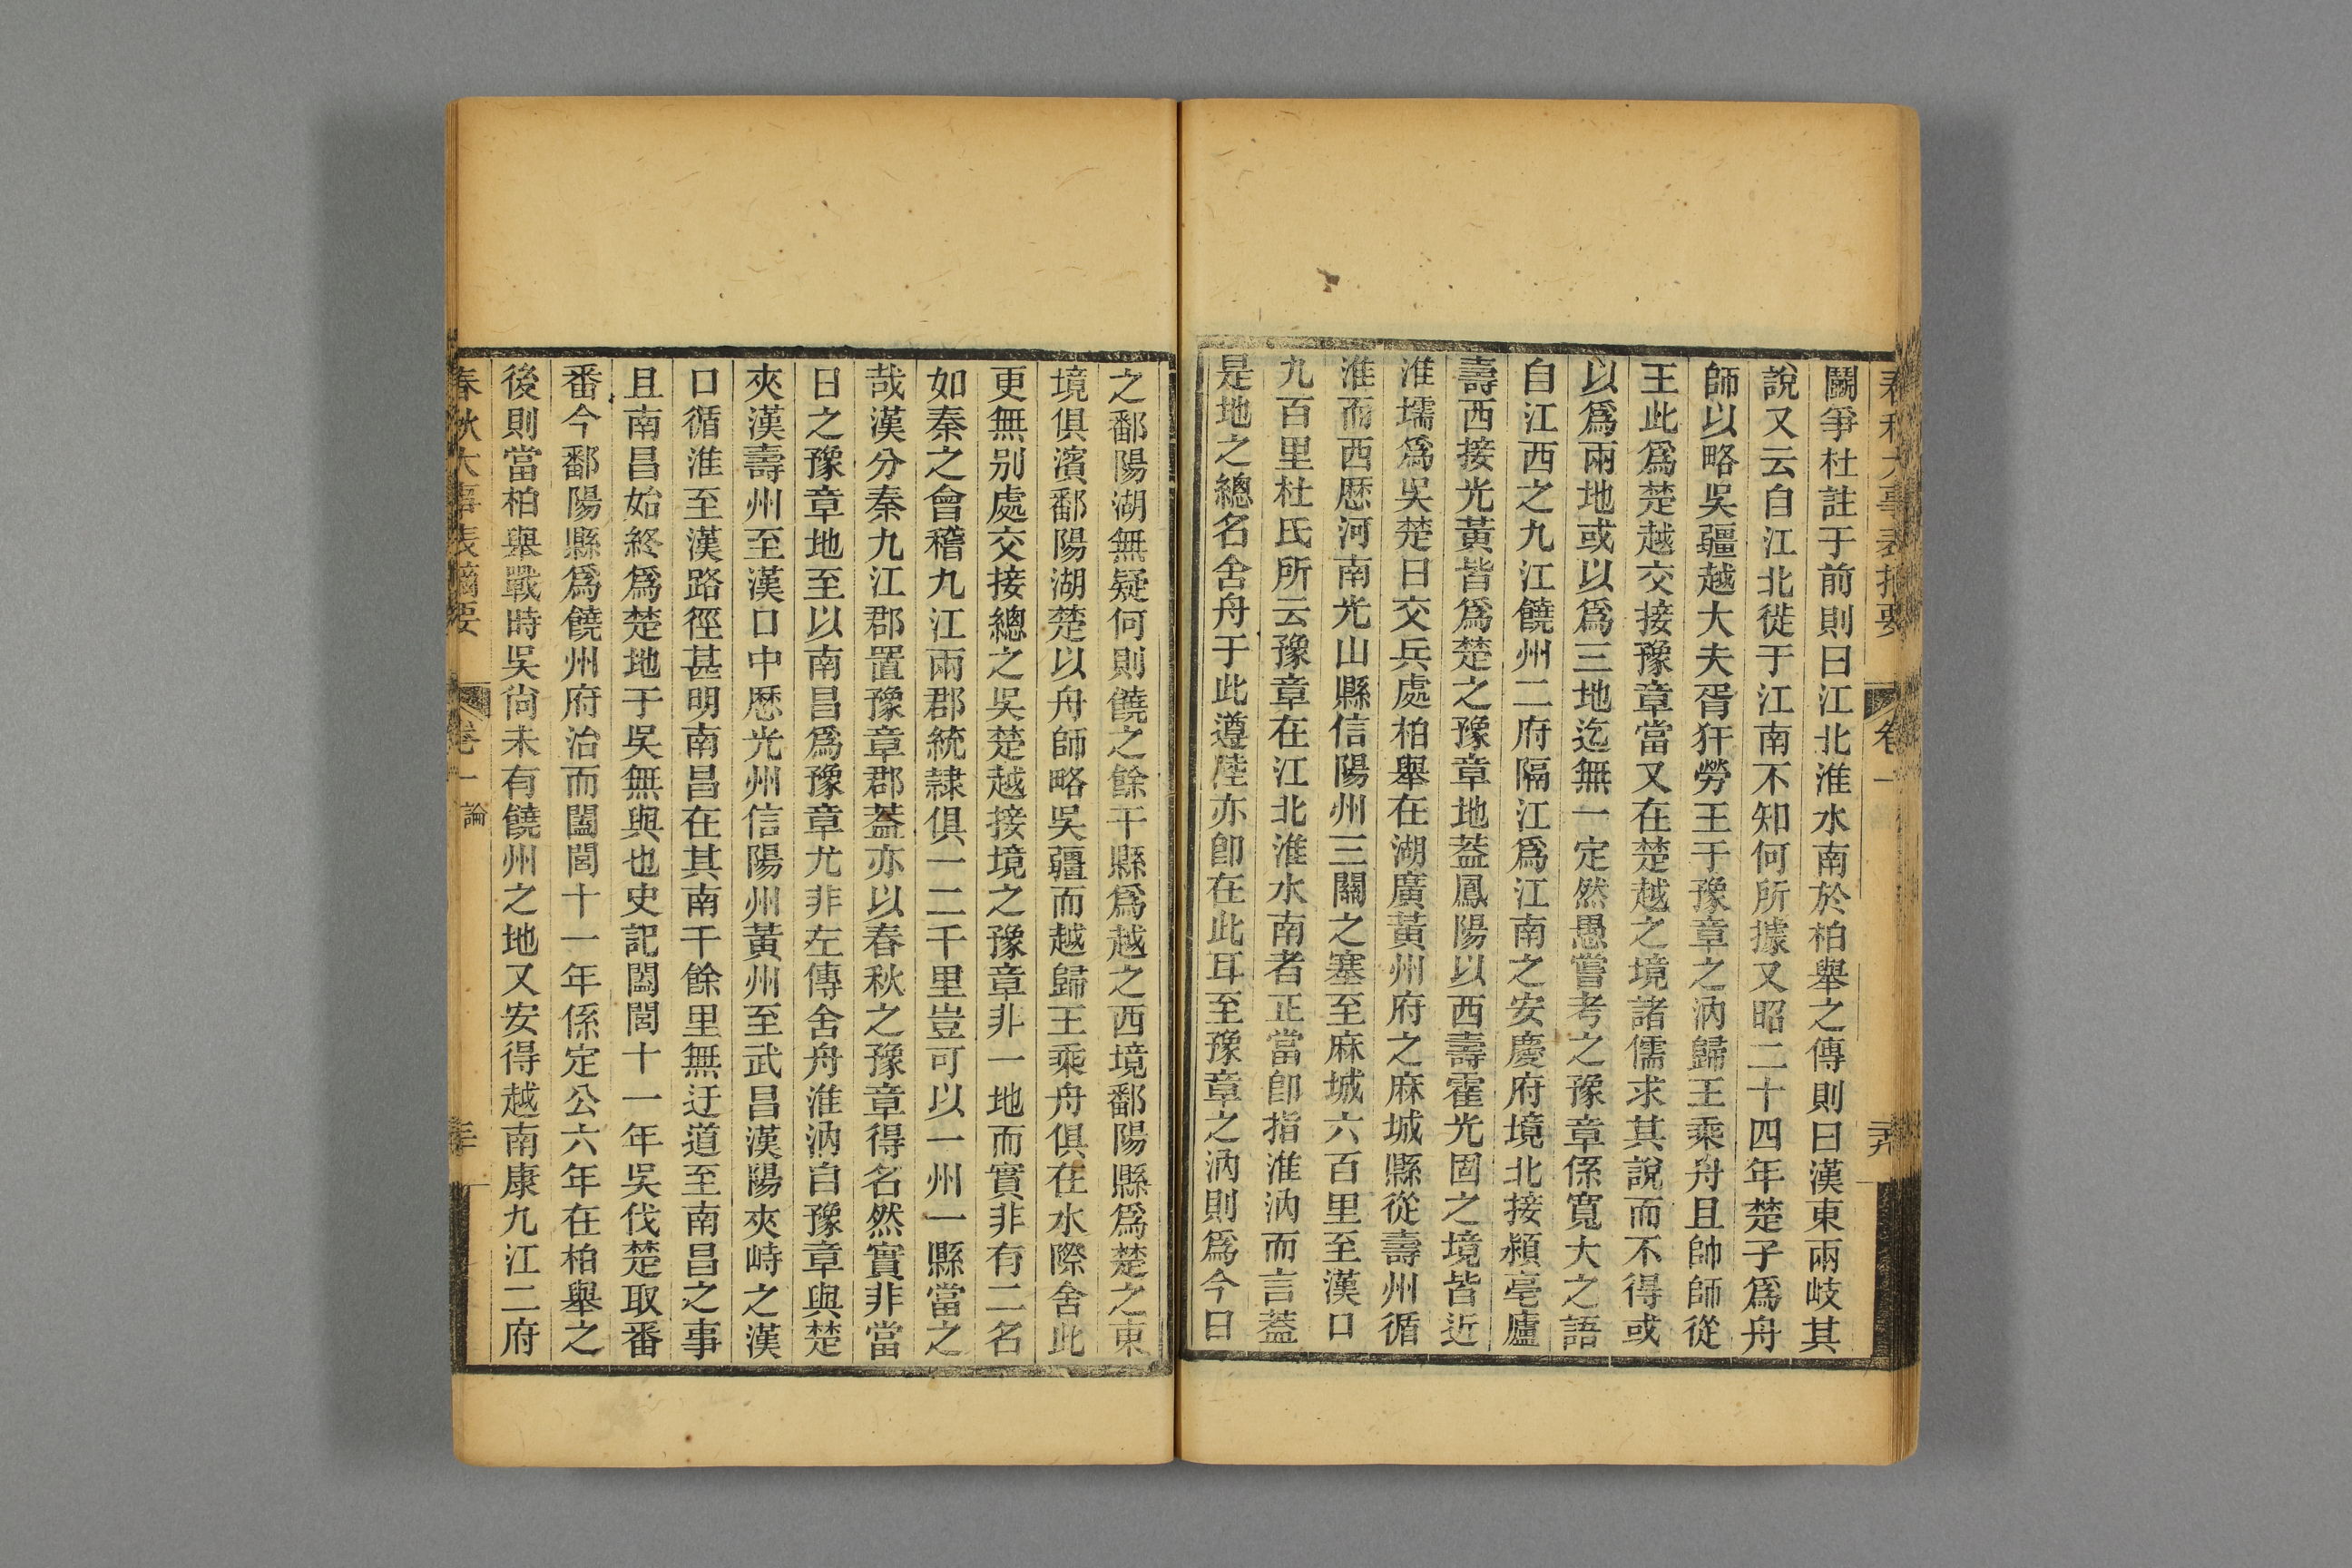 春秋大事表摘要 卷一 元
鬬爭杜註于前則曰江北淮水南於柏舉之傳則曰漢東兩岐其
說又云自江北徙于江南不知何所據又昭二十四年楚子爲舟
師以略吳疆越大夫胥犴勞王于豫章之汭歸王乘舟且帥師從
王此爲楚越交接豫章當又在楚越之境諸儒求其說而不得或
以爲兩地或以爲三地迄無一定然愚嘗考之豫章係寬大之語
自江西之九江饒州二府隔江爲江南之安慶府境北接潁亳廬
壽西接光黃皆爲楚之豫章地蓋鳳陽以西壽霍光固之境皆近
淮壖爲吳楚日交兵處柏舉在湖廣黃州府之麻城縣從壽州循
淮而西歷河南光山縣信陽州三關之塞至麻城六百里至漢口
九百里杜氏所云豫章在江北淮水南者正當卽指淮汭而言蓋
是地之總名舍舟于此遵陸亦卽在此耳至豫章之汭則爲今日
之鄱陽湖無疑何則饒之餘干縣爲越之西境鄱陽縣爲楚之東
境俱濱鄱陽湖楚以舟師略吳疆而越歸王乘舟俱在水際舍此
更無别處交接總之吳楚越接境之豫章非一地而實非有二名
如秦之會稽九江兩郡統隸俱一二千里豈可以一州一縣當之
哉漢分秦九江郡置豫章郡蓋亦以春秋之豫章得名然實非當
日之豫章地至以南昌爲豫章尤非左傳舍舟淮汭自豫章與楚
夾漢壽州至漢口中歷光州信陽州黃州至武昌漢陽夾峙之漢
口循淮至漢路徑甚明南昌在其南千餘里無迂道至南昌之事
且南昌始終爲楚地于吳無與也史記闔閭十一年吳伐楚取番
番今鄱陽縣爲饒州府治而闔閭十一年係定公六年在柏舉之
後則當柏舉戰時吳尙未有饒州之地又安得越南康九江二府
春秋大事表摘要 卷一 論